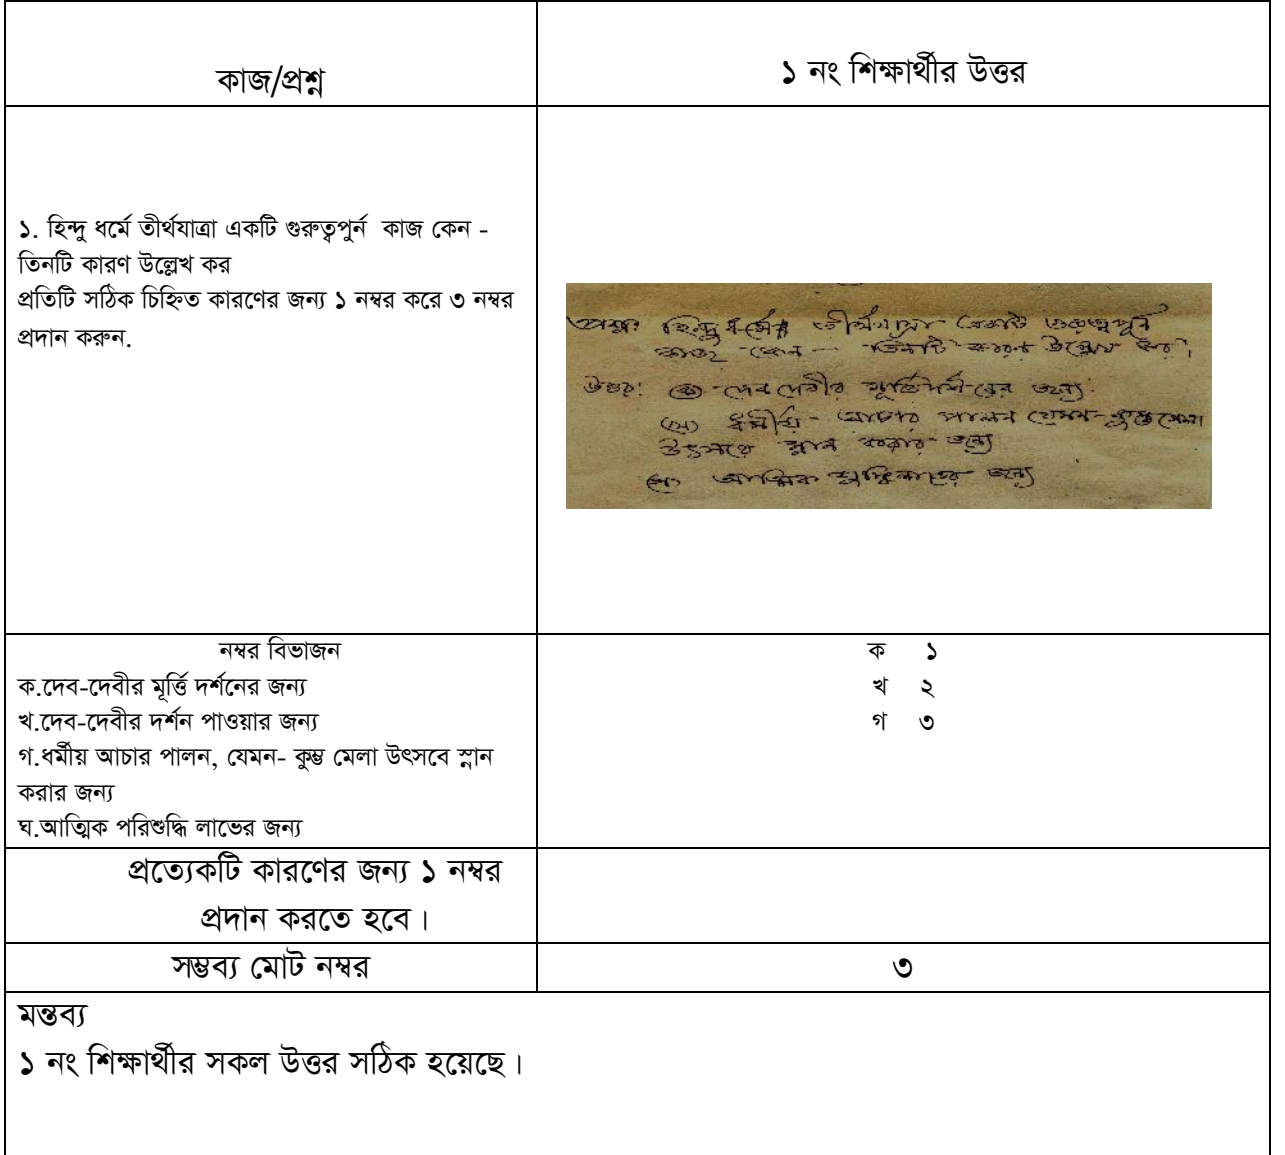 কাজ/প্রশ্ন
১ নং শিক্ষার্থীর উত্তর
১. হিন্দু ধর্মে তীর্থযাত্রা একটি গুরুত্বপুর্ন কাজ কেন -
তিনটি কারণ উল্লেখ কর
প্রতিটি সঠিক চিহ্নিত কারণের জন্য ১ নম্বর করে ৩ নম্বর
প্রদান করুন.
প্রশ্ন: হিন্দু ধর্মের তীর্থযাত্রা একটি গুরুত্বপূর্ন
কাজ কেন - তিনটি কারণ উল্লেখ কর।
উত্তর: (ক) দেব দেবীর মূর্তি দর্শনের জন্য।
(খ) ধর্মীয় আচার পালন যেমন- কুম্ভ মেলা
উৎসবে স্নান করার জন্য
(গ) আত্মিক শুদ্ধিলাভের জন্য
নম্বর বিভাজন
ক.দেব-দেবীর মূর্ত্তি দর্শনের জন্য
খ.দেব-দেবীর দর্শন পাওয়ার জন্য
গ.ধর্মীয় আচার পালন, যেমন- কুম্ভ মেলা উৎসবে স্নান
করার জন্য
ঘ.আত্মিক পরিশুদ্ধি লাভের জন্য
ক ১
খ ২
গ ৩
প্রত্যেকটি কারণের জন্য ১ নম্বর
প্রদান করতে হবে।
সম্ভব্য মোট নম্বর
৩
মন্তব্য
১ নং শিক্ষার্থীর সকল উত্তর সঠিক হয়েছে।